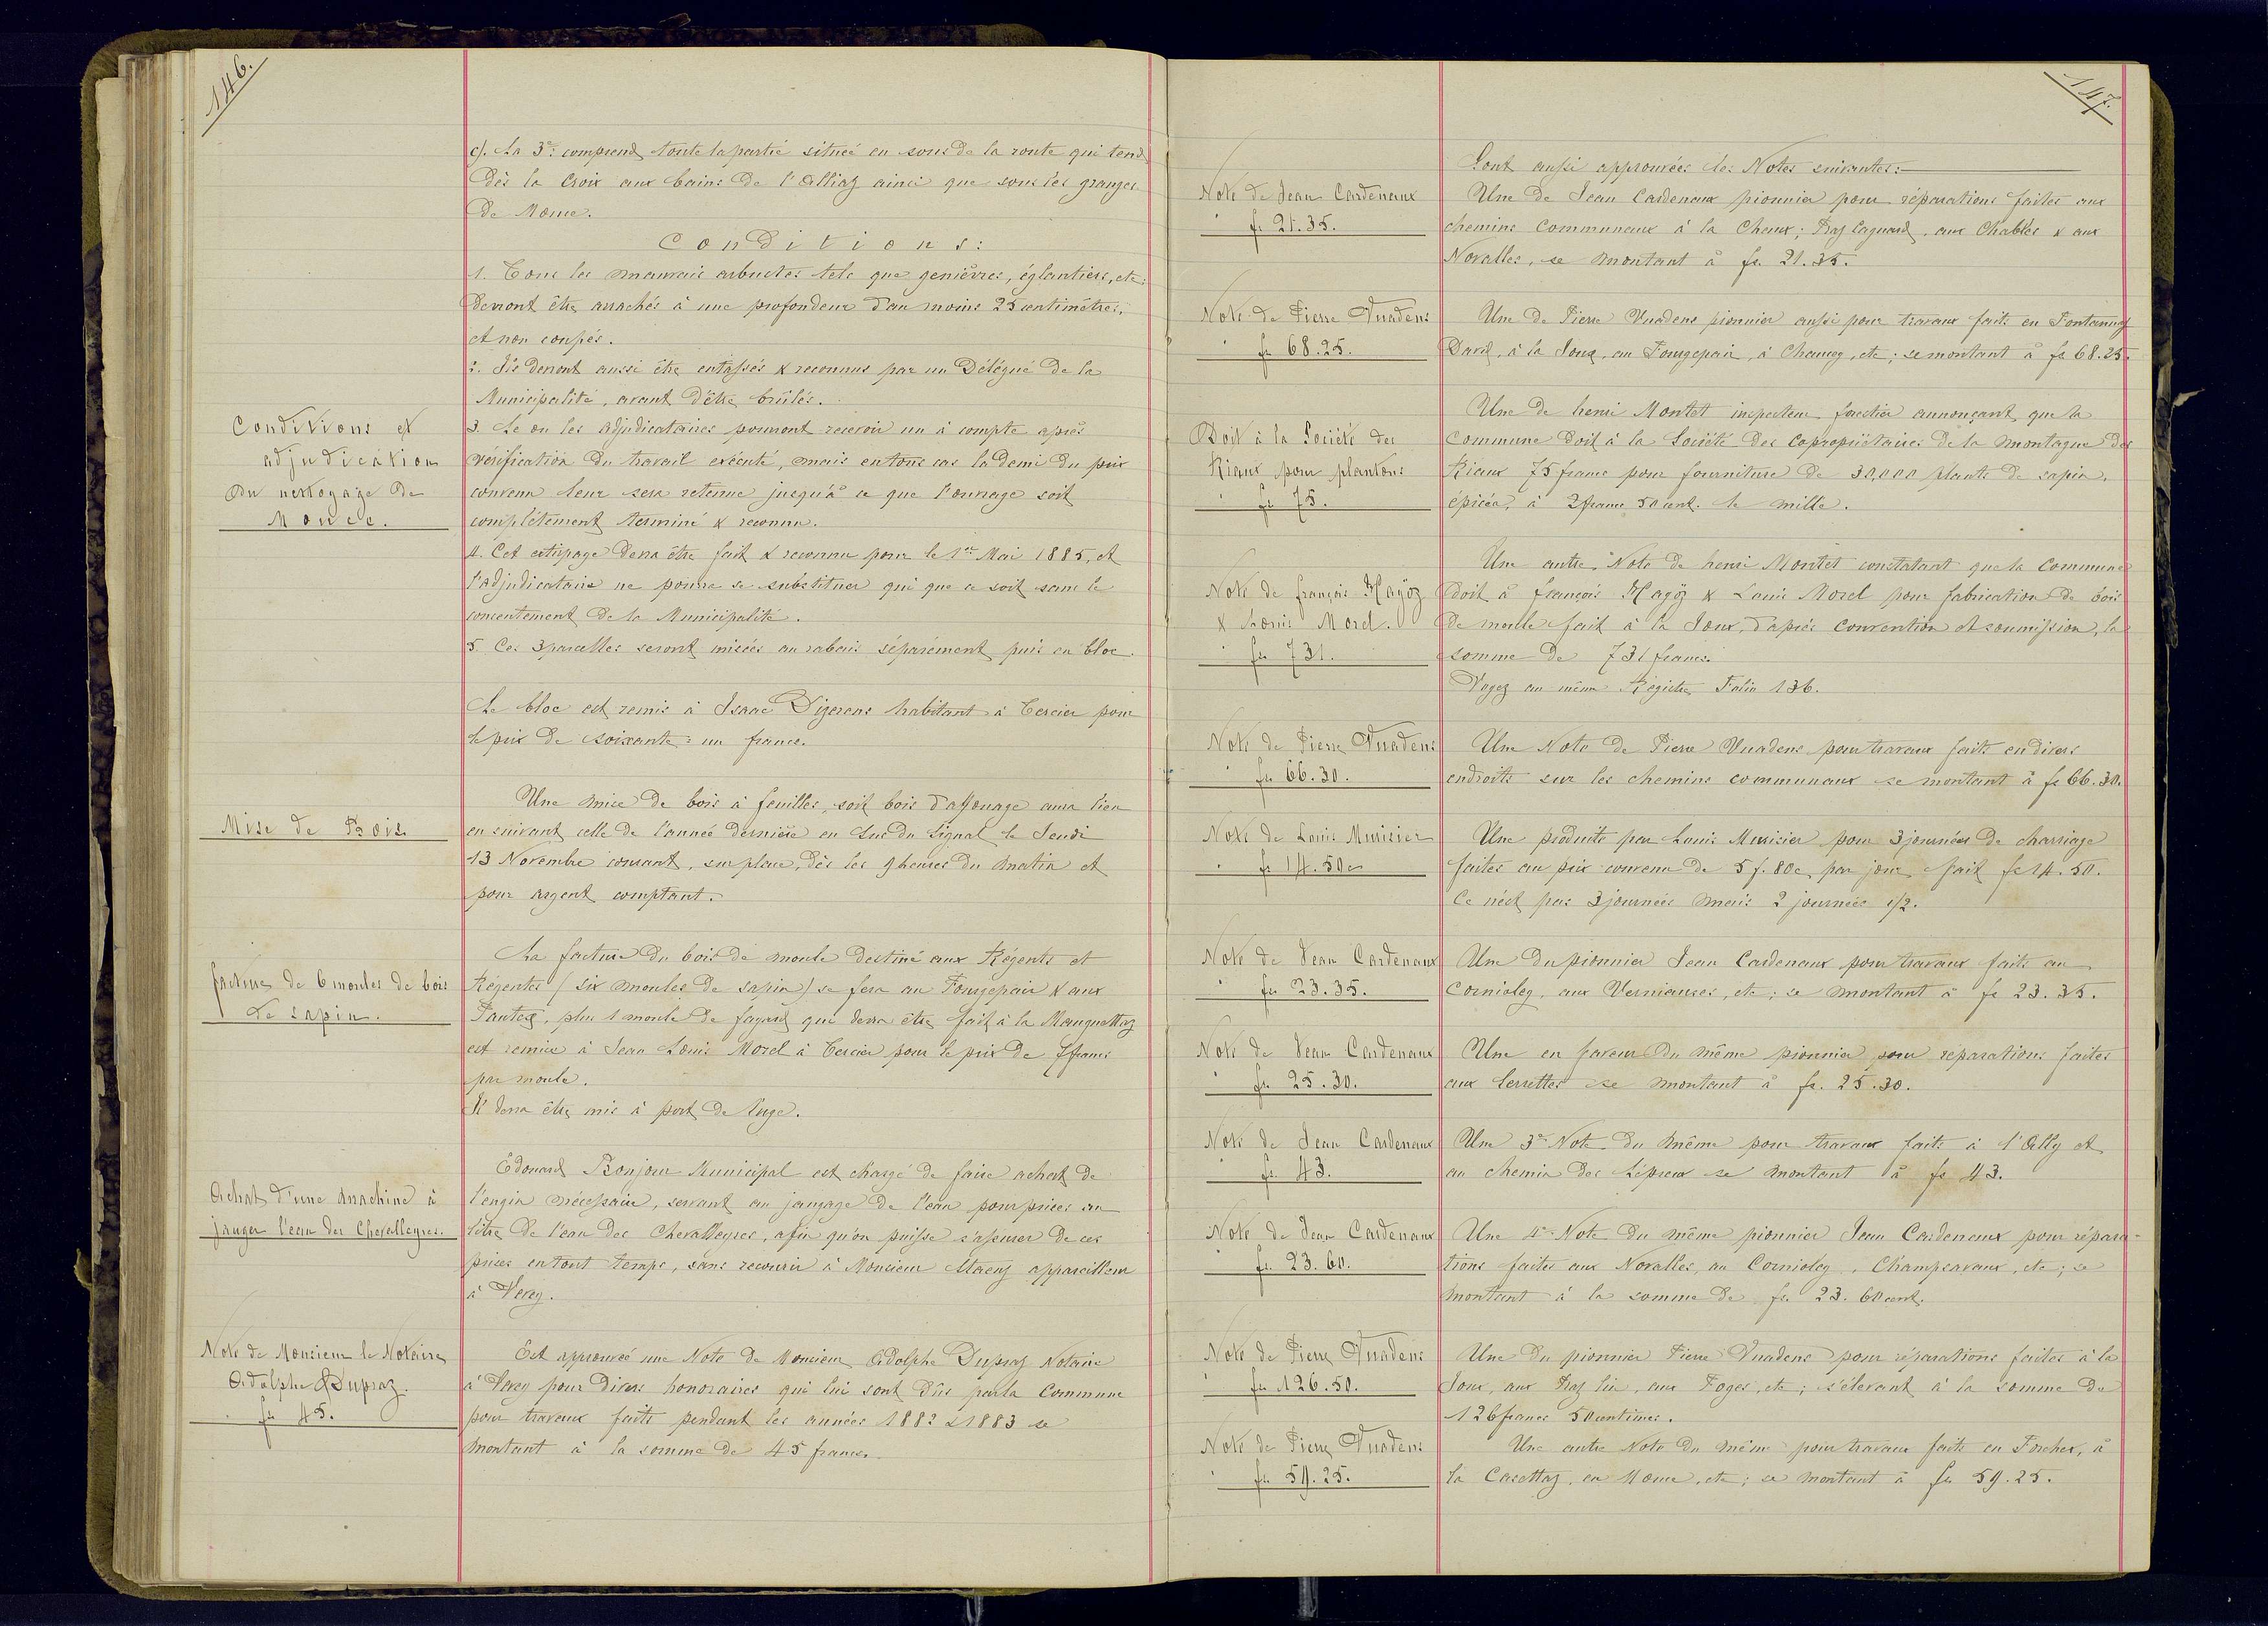 146.
c). La 3e. comprend toute la partie située en sous de la route qui tend
dès la Croix aux bains de l'Alliaz ainsi que sous les granges
de Mouse.
Conditions:
Conditions et
adjudication
du nettoyage de
1. Tous les mauvais arbustes tels que genièvres, églantiers, etc.
devront être arrachés à une profondeur d'au moins 25 centimètres,
et non coupés.
2. Ils devront aussi être entassés & reconnus par un Délégué de la
Municipalité, avant d'être brûlés.
3. Le ou les adjudicataires pourront recevoir un à compte après
vérification du travail exécuté, mais en tous cas la demi du prix
convenu leur sera retenue jusqu'à ce que l'ouvrage soit
complètement terminé & reconnu.
4. Cet extirpage devra être fait & reconnu pour le 1er Mai 1885, et
l'adjudicataire ne pourra se substituer qui que ce soit sans le
consentement de la Municipalité.
5. Ces 3 parcelles seront misées au rabais séparément puis en bloc.
Le bloc est remis à Isaac Digerens habitant à Tercier pour
le prix de soixante-un francs.
Mise de Bois.
Une mise de bois à feuilles, soit bois d'affouage aura lieu
en suivant celle de l'année dernière en Sus du Signal le Jeudi
13 Novembre courant, sur place, dès les 9 heures du matin et
pour argent comptant.
facture de 6 moules de bois
de sapin.
La facture du bois de moule destiné aux Régents et
Régentes (six moules de sapin) se fera au Fourgepair & aux
Pautex, plus 1 moule de fayard qui devra être fait à la Manguettaz
est remise à Jean Louis Morel à Tercier pour le prix de 7 francs
par moule.
Il devra être mis à port de luge.
Achat d'une machine à
jauger l'eau des Chevalleyres.
Edouard Bonjour Municipal est chargé de faire achat de
l'engin nécessaire, servant au jaugage de l'eau pour prises au
litre de l'eau des Chevalleyres, afin qu'on puisse s'assurer de ces
prises en tout temps, sans recourir à Monsieur appareilleur
à Vevey.
Note de Monsieur le Notaire
Adolphe Dupraz.
fr. 45.
Est approuvée une Note de Monsieur Adolphe Dupraz Notaire
à Vevey pour divers honoraires qui lui sont dûs par la Commune
pour travaux faits pendant les années 1882 & 1883 se
montant à la somme de 45 francs.
147.
Sont aussi approuvées les Notes suivantes:
Note de Jean Cardenaux
fr. 21.35.
Une de Jean Cardenaux pionnier pour réparations faites aux
chemins Communaux à la Chaux; Praz Cagnard, aux Chables & aux
Novalles, se montant à fr. 21.35.
Note de Pierre Vuadens
fr. 68.25.
Une de Pierre Vuadens pionnier aussi pour travaux faits en Fontannaz
David, à la Joux, au Fourgepair, à Chaucey, etc; se montant à fr 68.25.
Doit à la Société des
Riaux pour plantons
fr 75.
Une de henri Montet inspecteur forestier annonçant que la
Commune doit à la Société des Copropriétaires de la montagne des
Riaux 75 francs pour fourniture de 30,000 plants de sapin,
épicéa, à 2 francs 50 cent. le mille.
Note de françois Mayöz
& Louis Morel.
fr 731.
Une autre Note de henri Montet constatant que la Commune
doit à françois Mayöz & Louis Morel pour fabrication de bois
de moule fait à la Joux, d'après Convention et soumission, la
somme de 731 francs.
Voyez au même Régistre, Folio 136.
Note de Pierre Vuadens
fr 66.30.
Une Note de Pierre Vuadens pour travaux faits en divers
endroits sur les chemins communaux se montant à fr 66.30.
Note de Louis Murisier
fr 14.50c
Une produite par Louis Murisier pour 3 journées de charriage
faites au prix convenu de 5 f. 80c, par jour, fait fr 14.50.
Ce n'est pas 3 journées mais 2 journées 1/2.
Note de Jean Cardenaux
fr 23.35.
Une du pionnier Jean Cardenaux pour travaux faits au
Corniolcy, aux Verniauses, etc; se montant à fr 23.35.
Note de Jean Cardenaux
fr. 25.30.
Une en faveur du même pionnier pour réparations faites
aux Serrettes se montant à fr. 25.30.
Note de Jean Cardenaux
fr. 43.
Une 3e Note du même pour travaux faits à l'Ally et
au chemin des Lépreux se montant à fr 43.
Note de Jean Cardenaux
fr. 23.60.
Une 4e Note du même pionnier Jean Cardenaux pour répara-
tions faites aux Novalles, au Corniolcy, Champsavaux, etc; se
montant à la somme de fr. 23.60 cent.
Note de Pierre Vuadens
fr 126.50.
Une du pionnier Pierre Vuadens pour réparations faites à la
Joux, aux Praz lia, aux Foges, etc; s'élevant à la somme de
126 francs 50 centimes.
Note de Pierre Vuadens
fr 59.25.
Une autre Note du même pour travaux faits en Forchex, à
la Casettaz, en Mouse, etc; se montant à fr 59.25.